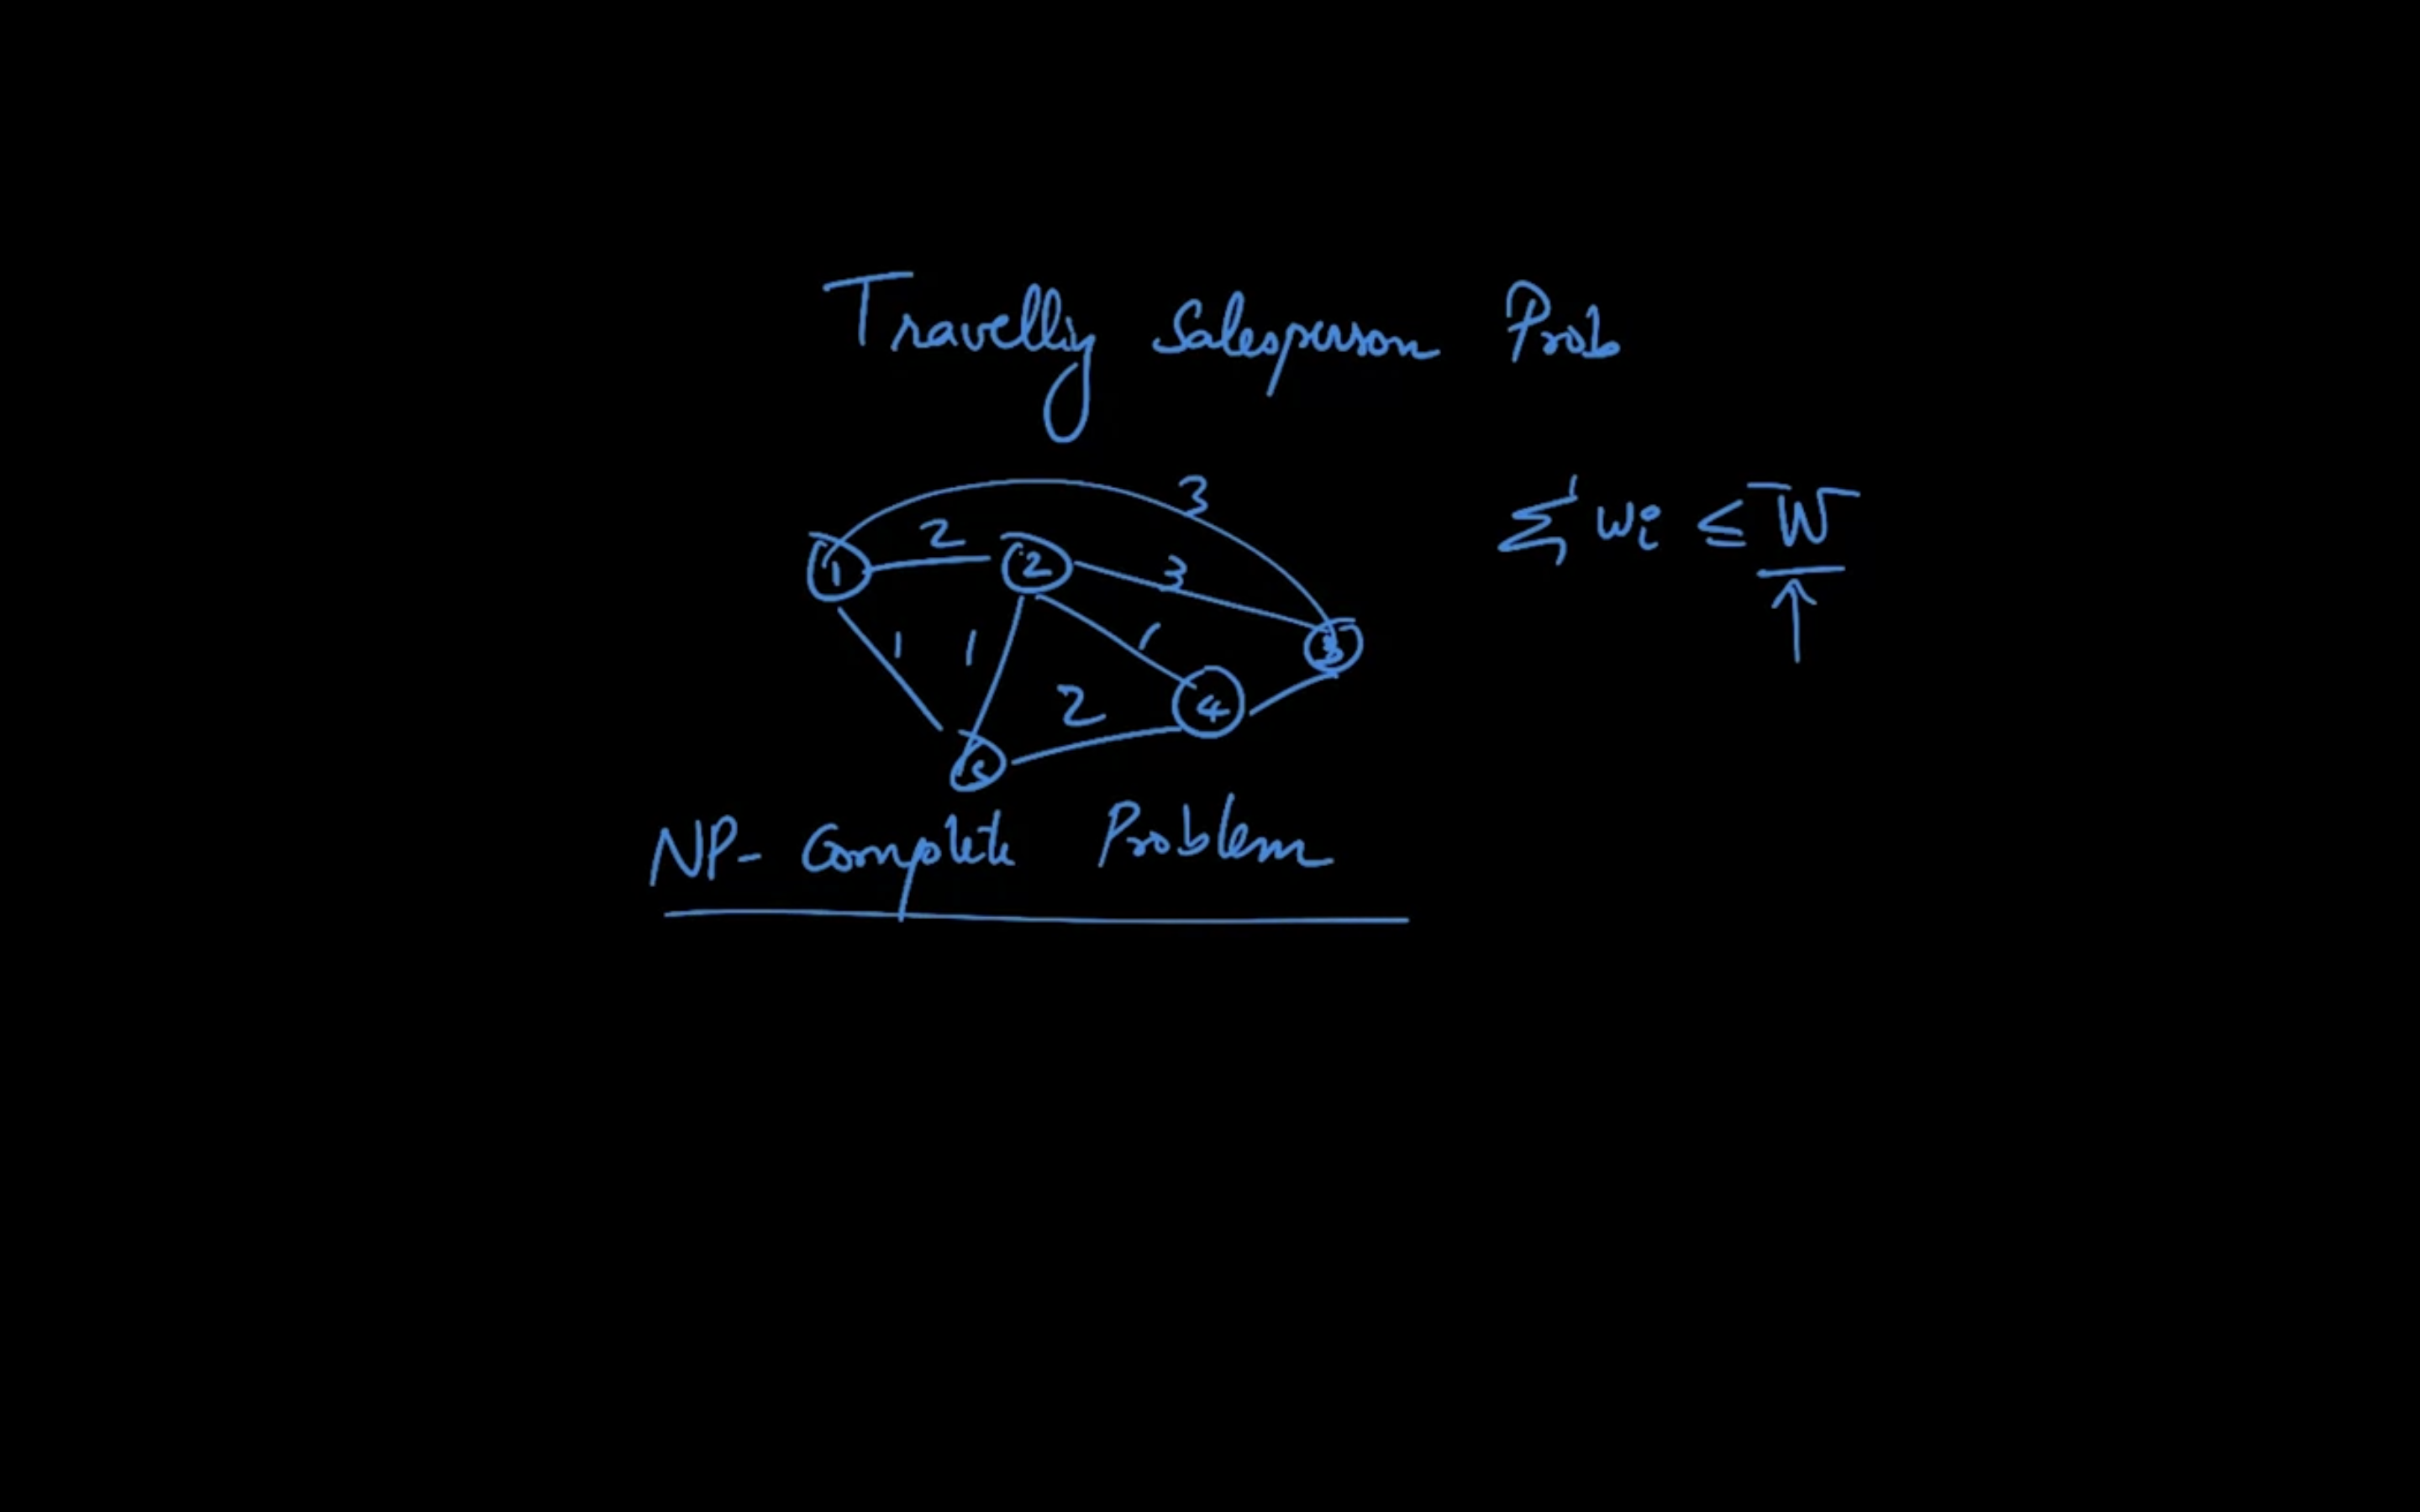 Travelling Salesperson Prob
3
2
Σ wi ≤ W
1
2
3
3
1
1
1
2
4
5
NP- Complete Problem